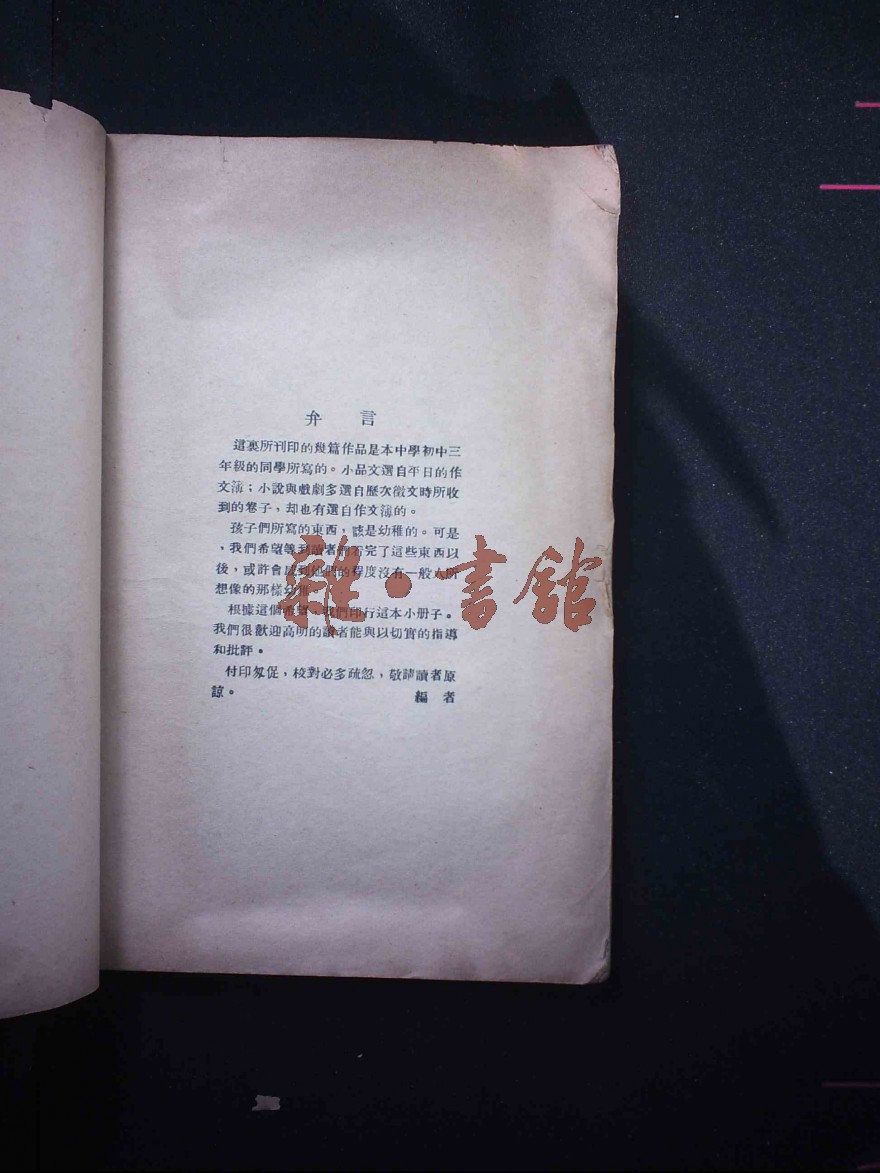 弁言
這裏所刊印的幾篇作品是本中學初中三
年級的同學所寫的。小品文選自平日的作
文簿；小說與戲劇多選自歷次徵文時所收
到的卷子，却也有選自作文簿的。
孩子們所寫的東西，該是幼稚的。可是
，我們希望等到讀者們看完了這些東西以
後，或許會感到他們的程度沒有一般人所
想像的那樣幼稚
根據這個希望，我們印行這本小册子。
我們很歡迎高明的讀者能與以切實的指導
和批評。
付印匆促，校對必多疏忽，敬請讀者原
諒。
編者
雜·書館